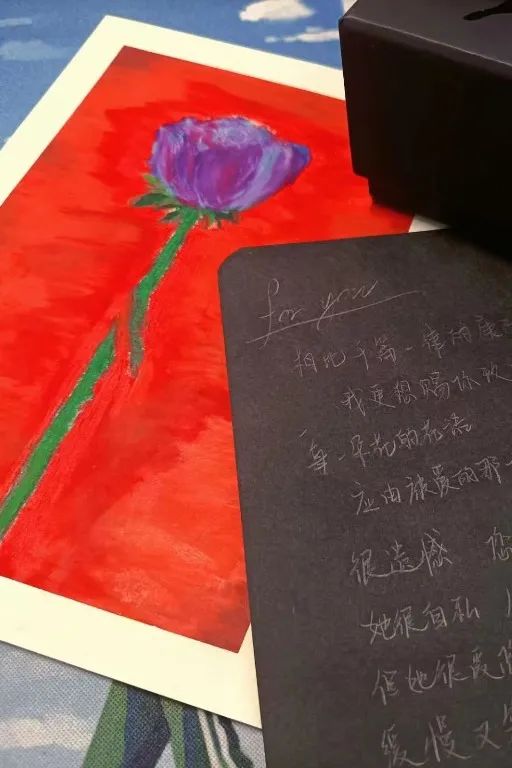 for you
相比千篇一律的康
我更想赐你玫
每一朵花的花语
应由被爱的那一
很遗憾 您
她很自私
但她很爱
缓慢又